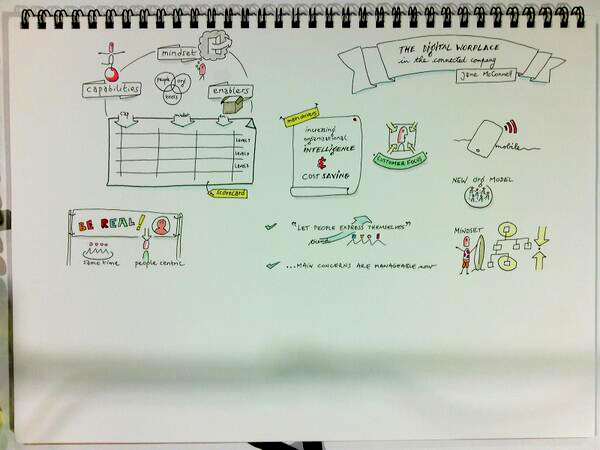 THE DIGITAL WORPLACE
in the connected company
Jane McConnell
mindset
capabilities
enablers
people
org
tools
cap
mindset
en
LEVEL 1
LEVEL 2
LEVEL 3
scorecard
main drivers
increasing
organizational
INTELLIGENCE
&
COST SAVING
CUSTOMER FOCUS
mobile
NEW org MODEL
BE REAL!
same time
people centric
"LET PEOPLE EXPRESS THEMSELVES"
...MAIN CONCERNS ARE MANAGEABLE now
MINDSET